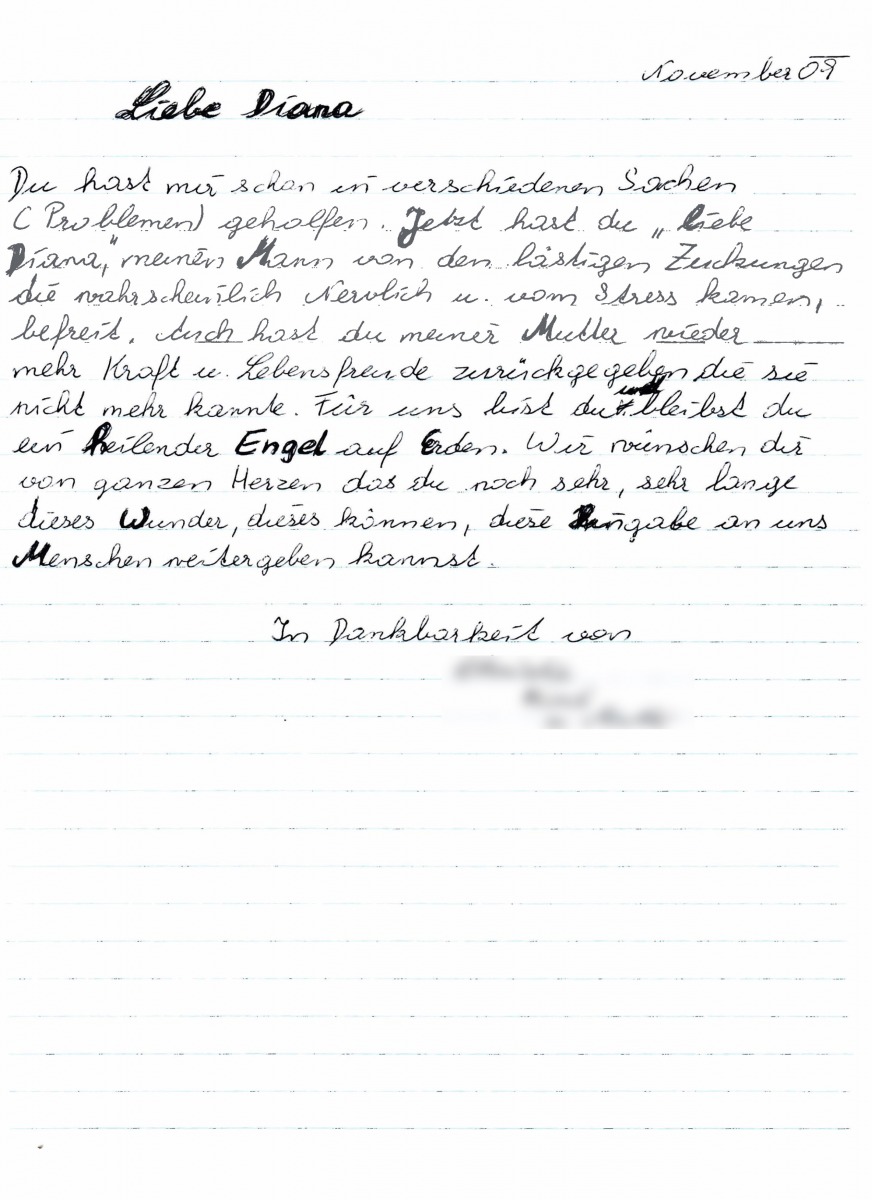 November 09
Liebe Diana
Du hast mir schon in verschiedenen Sachen
(Problemen) geholfen. Jetzt hast du „liebe
Diana," meinen Mann von den lästigen Zuckungen
die wahrscheinlich Nervlich u. vom Stress kamen,
befreit. Auch hast du meiner Mutter wieder
mehr Kraft u. Lebensfreude zurückgegeben die sie
nicht mehr kannte. Für uns bist du und bleibst du
ein heilender Engel auf Erden. Wir wünschen dir
von ganzen Herzen das du noch sehr, sehr lange
dieses Wunder, dieses können, diese an uns
Menschen weitergeben kannst.
In Dankbarkeit von